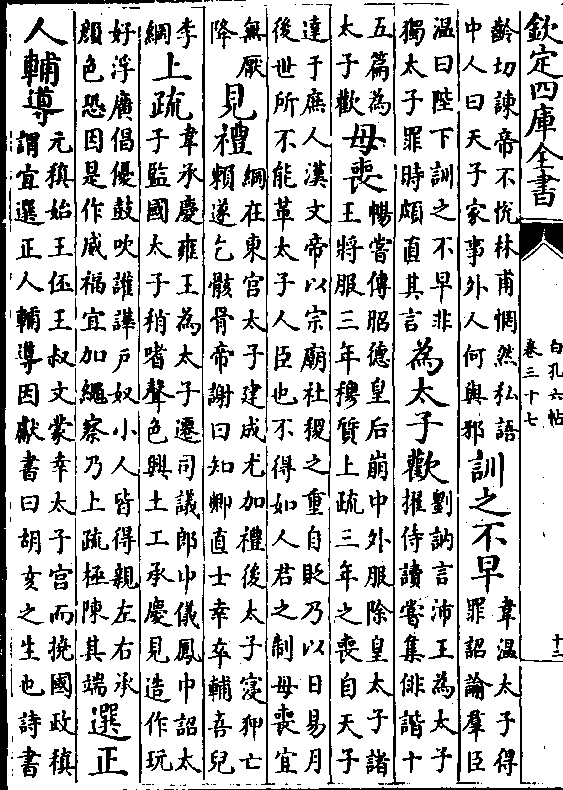 欽定四庫全書
白孔六帖
卷三十七
十二
齡切諫帝不悅林甫惘然私語
中人曰天子家事外人何與邪
訓之不早
韋温太子得
罪詔論羣臣
温曰陛下訓之不早非
獨太子罪時頗直其言
為太子歡
劉訥言沛王為太子
擢侍讀嘗集俳諧十
五篇為
太子歡
母喪
暢嘗傅昭德皇后崩中外服除皇太子諸
王將服三年穆質上疏三年之喪自天子
達于庶人漢文帝以宗廟社稷之重自貶乃以日易月
後世所不能革太子人臣也不得如人君之制母喪宜
無厭
降
見禮
綱在東宮太子建成尤加禮後太子寖狎亡
賴遂乞骸骨帝謝曰知卿直士幸卒輔喜兒
李
綱
上疏
韋承慶雍王為太子遷司議郎巾儀鳳中詔太
子監國太子稍嗜聲色興土工承慶見造作玩
好浮廣倡優鼓吹讙譁戶奴小人皆得親左右承
顏色恐因是作威福宜加繩察乃上疏極陳其端
選正
人輔導
元稹始王伾王叔文蒙幸太子宮而撓國政稹
謂宜選正人輔導因獻書曰胡亥之生也詩書